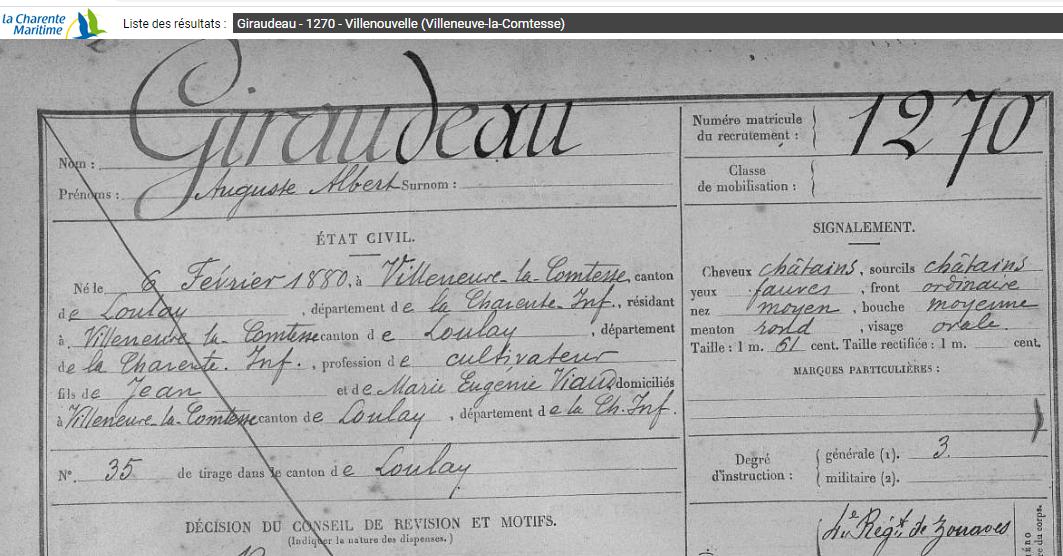 la Charente
Maritime
Liste des résultats : Giraudeau - 1270 - Villenouvelle (Villeneuve-la-Comtesse)
Nom : Giraudeau
Prénoms : Auguste Albert Surnom :
Numéro matricule
du recrutement : 1270
Classe
de mobilisation :
ÉTAT CIVIL.
Né le 6 Février 1880, à Villeneuve-la-Comtesse, canton
de Loulay, département de la Charente-Inf., résidant
à Villeneuve la-Comtesse canton de Loulay, département
de la Charente. Inf., profession de cultivateur
fils de Jean et de Marie Eugénie Viaud domiciliés
à Villeneuve-la-Comtesse canton de Loulay, département de la Ch. Inf.
N°. 35 de tirage dans le canton de Loulay
DÉCISION DU CONSEIL DE REVISION ET MOTIFS.
(Indiquer la nature des dispenses.)
SIGNALEMENT.
Cheveux châtains, sourcils châtains
yeux fauves, front ordinaire
nez moyen, bouche moyenne
menton rond, visage ovale.
Taille : 1 m. 61 cent. Taille rectifiée : 1 m. cent.
MARQUES PARTICULIÈRES :
Degré
d'instruction :
générale (1). 3.
militaire (2).
4e Régt de Zouaves
du corps.